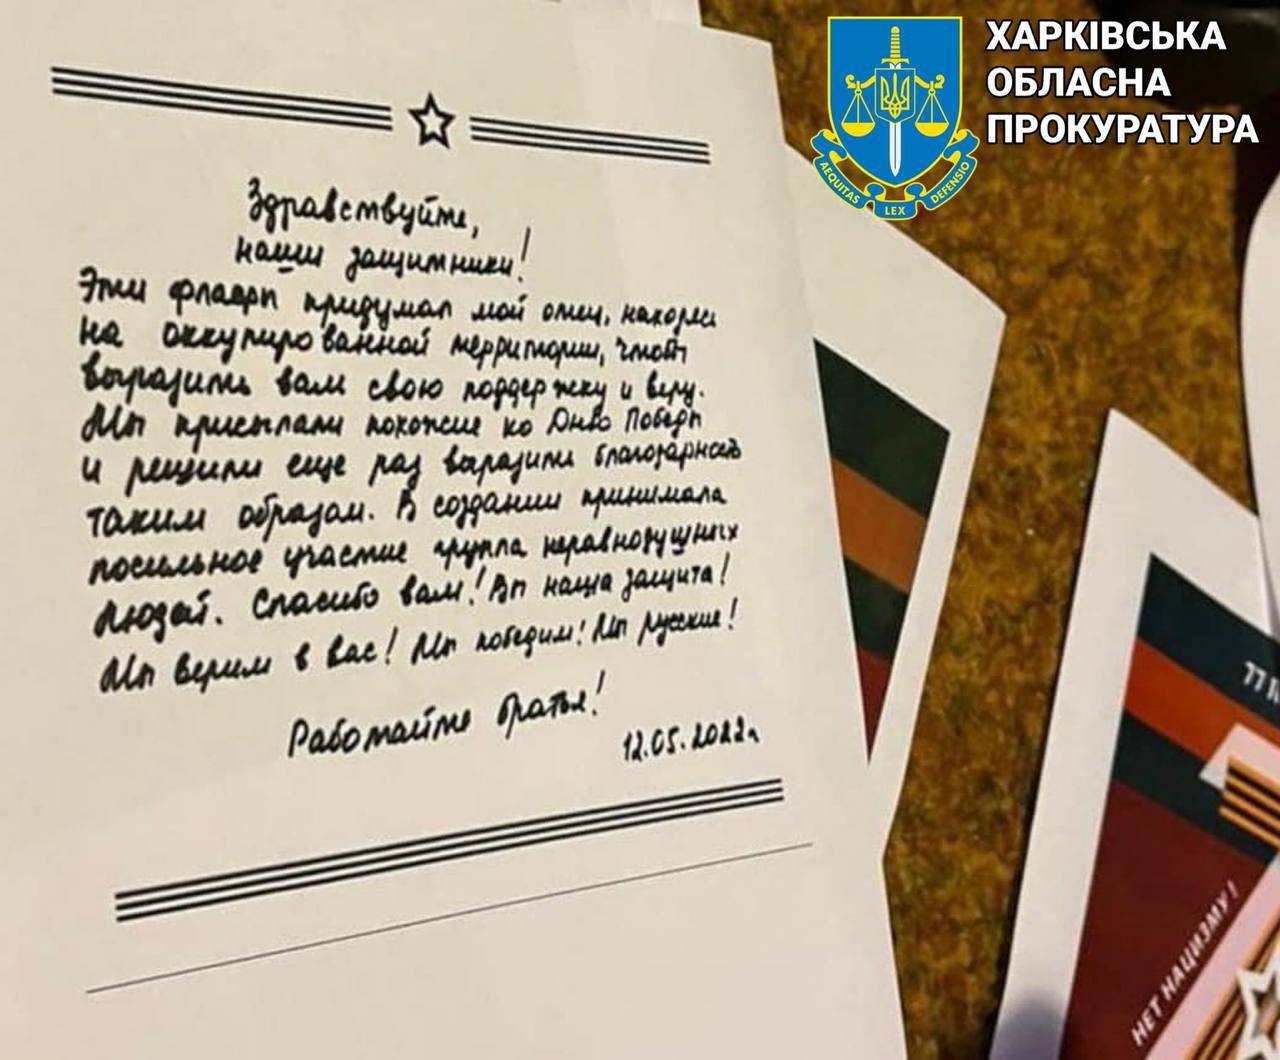 ХАРКІВСЬКА
ОБЛАСНА
ПРОКУРАТУРА
AEQUITAS LEX DEFENSIO
Здравствуйте,
наши защитники!
Эти флаеры придумал мой отец, находясь
на оккупированной территории, чтобы
выразить вам свою поддержку и веру.
Мы присылали похожие ко Дню Победы
и решили еще раз выразить благодарность
таким образом. В создании принимала
посильное участие группа неравнодушных
людей. Спасибо вам! Вы наша защита!
Мы верим в вас! Мы победим! Мы русские!
Работайте братья!
12.05.2022г
77
НЕТ НАЦИЗМУ!